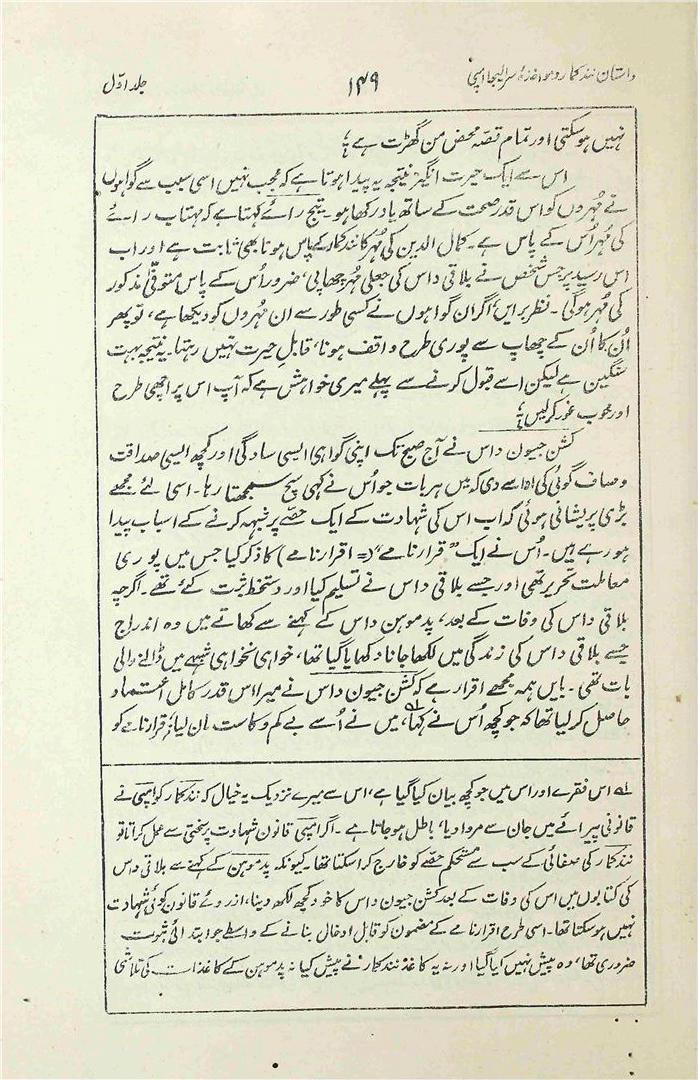 داستان نند کمار و مواخذۂ سر الیجا امپی
۱۴۹
جلد اوّل
نہیں ہو سکتی اور تمام قصّہ محض من گھڑت ہے ؛
اس سے ایک حیرت انگیز نتیجہ یہ پیدا ہوتا ہے کہ عجب نہیں اسی سبب سے گواہوں
نے مُہروں کو اس قدر صحت کے ساتھ یاد رکھا ہو۔ تیج رائے کہتا ہے کہ مہتاب رائے
کی مُہر اُس کے پاس ہے۔ کمال الدین کی مُہر کا نند کمار کے پاس ہونا بھی ثابت ہے اور اب
اس رسید پر جس شخص نے بلاقی داس کی جعلی مُہر چھاپی، ضرور اُس کے پاس متوفیٰ مذکور
کی مُہر ہوگی۔ نظر برایں، اگر ان گواہوں نے کسی طور سے ان مُہروں کو دیکھا ہے، تو پھر
اُن کا اُن کے چھاپ سے پوری طرح واقف ہونا، قابلِ حیرت نہیں رہتا۔ یہ نتیجہ بہت
سنگین ہے لیکن اسے قبول کرنے سے پہلے میری خواہش ہے کہ آپ اس پر اچھی طرح
اور خوب غور کر لیں ؛
کشن جیون داس نے آج صبح تک اپنی گواہی ایسی سادگی اور کچھ ایسی صداقت
و صاف گوئی کی ادا سے دی کہ میں ہر بات جو اُس نے کہی سچ سمجھتا رہا۔ اسی لئے مجھے
بڑی پریشانی ہوئی کہ اب اس کی شہادت کے ایک حصّے پر شبہہ کرنے کے اسباب پیدا
ہو رہے ہیں۔ اُس نے ایک ”قرار نامے“ (= اقرار نامے) کا ذکر کیا جس میں پوری
معاملت تحریر تھی اور جسے بلاقی داس نے تسلیم کیا اور دستخط ثبت کئے تھے۔ اگرچہ
بلاقی داس کی وفات کے بعد، پدموہن داس کے کہنے سے کھاتے میں وہ اندراج
جسے بلاقی داس کی زندگی میں لکھا جانا دکھایا گیا تھا، خواہی نخواہی شبہے میں ڈالنے والی
بات تھی۔ بایں ہمہ مجھے اقرار ہے کہ کشن جیون داس نے میرا اس قدر کامل اعتماد
حاصل کر لیا تھا کہ جو کچھ اُس نے کہا، میں نے اُسے بے کم و کاست مان لیا، قرار نامے کو
لہ اس فقرے اور اس میں جو کچھ بیان کیا گیا ہے، اس سے میرے نزدیک یہ خیال کہ نند کمار کو امپی نے
قانونی پیرائے میں جان سے مروا دیا، باطل ہو جاتا ہے۔ اگر امپی قانون شہادت پر سختی سے عمل کراتا تو
نند کمار کی صفائی کے سب سے مستحکم حصّے کو خارج کر اسکتا تھا کیونکہ پدموہن کے کہنے سے بلاقی داس
کی کتابوں میں اس کی وفات کے بعد کشن جیون داس کا خود کچھ لکھ دینا، از روئے قانون کوئی شہادت
نہیں ہو سکتا تھا۔ اسی طرح اقرار نامے کے مضمون کو قابلِ ادخال بنانے کے واسطے جو ابتدائی ثبوت
ضروری تھا، وہ پیش نہیں کیا گیا اور نہ یہ کاغذ نند کمار نے پیش کیا نہ پدموہن کے کاغذات کی تلاشی